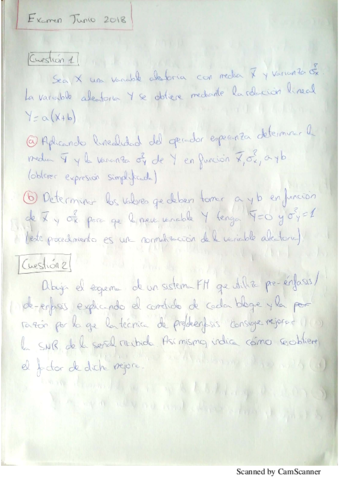 Examen Junio 2018
Cuestión 1
Sea X una variable aleatoria con media X̄ y varianza σ²ₓ
La variable aleatoria Y se obtiene mediante la relación lineal
Y=a(X+b)
a) Aplicando linealidad del operador esperanza determinar la
media Ȳ y la varianza σ²ᵧ de Y en función X̄, σ²ₓ, a y b
(obtener expresión simplificada)
b) Determinar los valores que deben tomar a y b en función
de X̄ y σ²ₓ para que la nueva variable Y tenga Ȳ=0 y σ²ᵧ=1
(este procedimiento es una normalización de la variable aleatoria)
Cuestión 2
Dibuja el esquema de un sistema FM que utiliza pre-énfasis/
de-énfasis explicando el cometido de cada bloque y la
razón por la que la técnica de consigue mejorar
la SNR de la señal recibida. Asi mismo, indica cómo se obtiene
el factor de dicha mejora.
Scanned by CamScanner